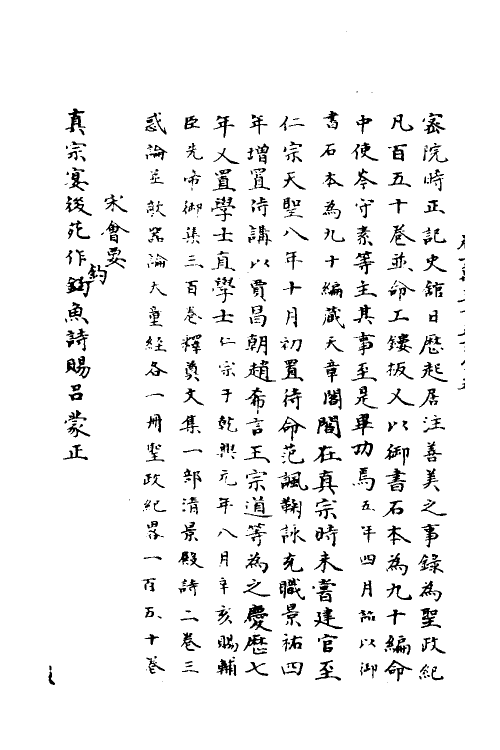 宻院時正記史舘日歷起居注善美之事錄為聖政紀
凡百五十卷並命工鏤板又以御書石本為九十編命
中使岑守素等主其事至是畢功焉五年四月詔以御
書石本為九十編藏天章閣閣在真宗時未嘗建官至
仁宗天聖八年十月初置待命范諷鞠詠充職景祐四
年增置侍講以賈昌朝趙希言王宗道等為之慶歷七
年又置學士直學士仁宗于乾興元年八月辛亥賜輔
臣先帝御集三百卷釋奠文集一部清景殿詩二卷三
惑論並歌器論大童經各一冊聖政紀畧一百五十卷
宋會要
真宗宴後苑作釣魚詩賜呂蒙正
釣